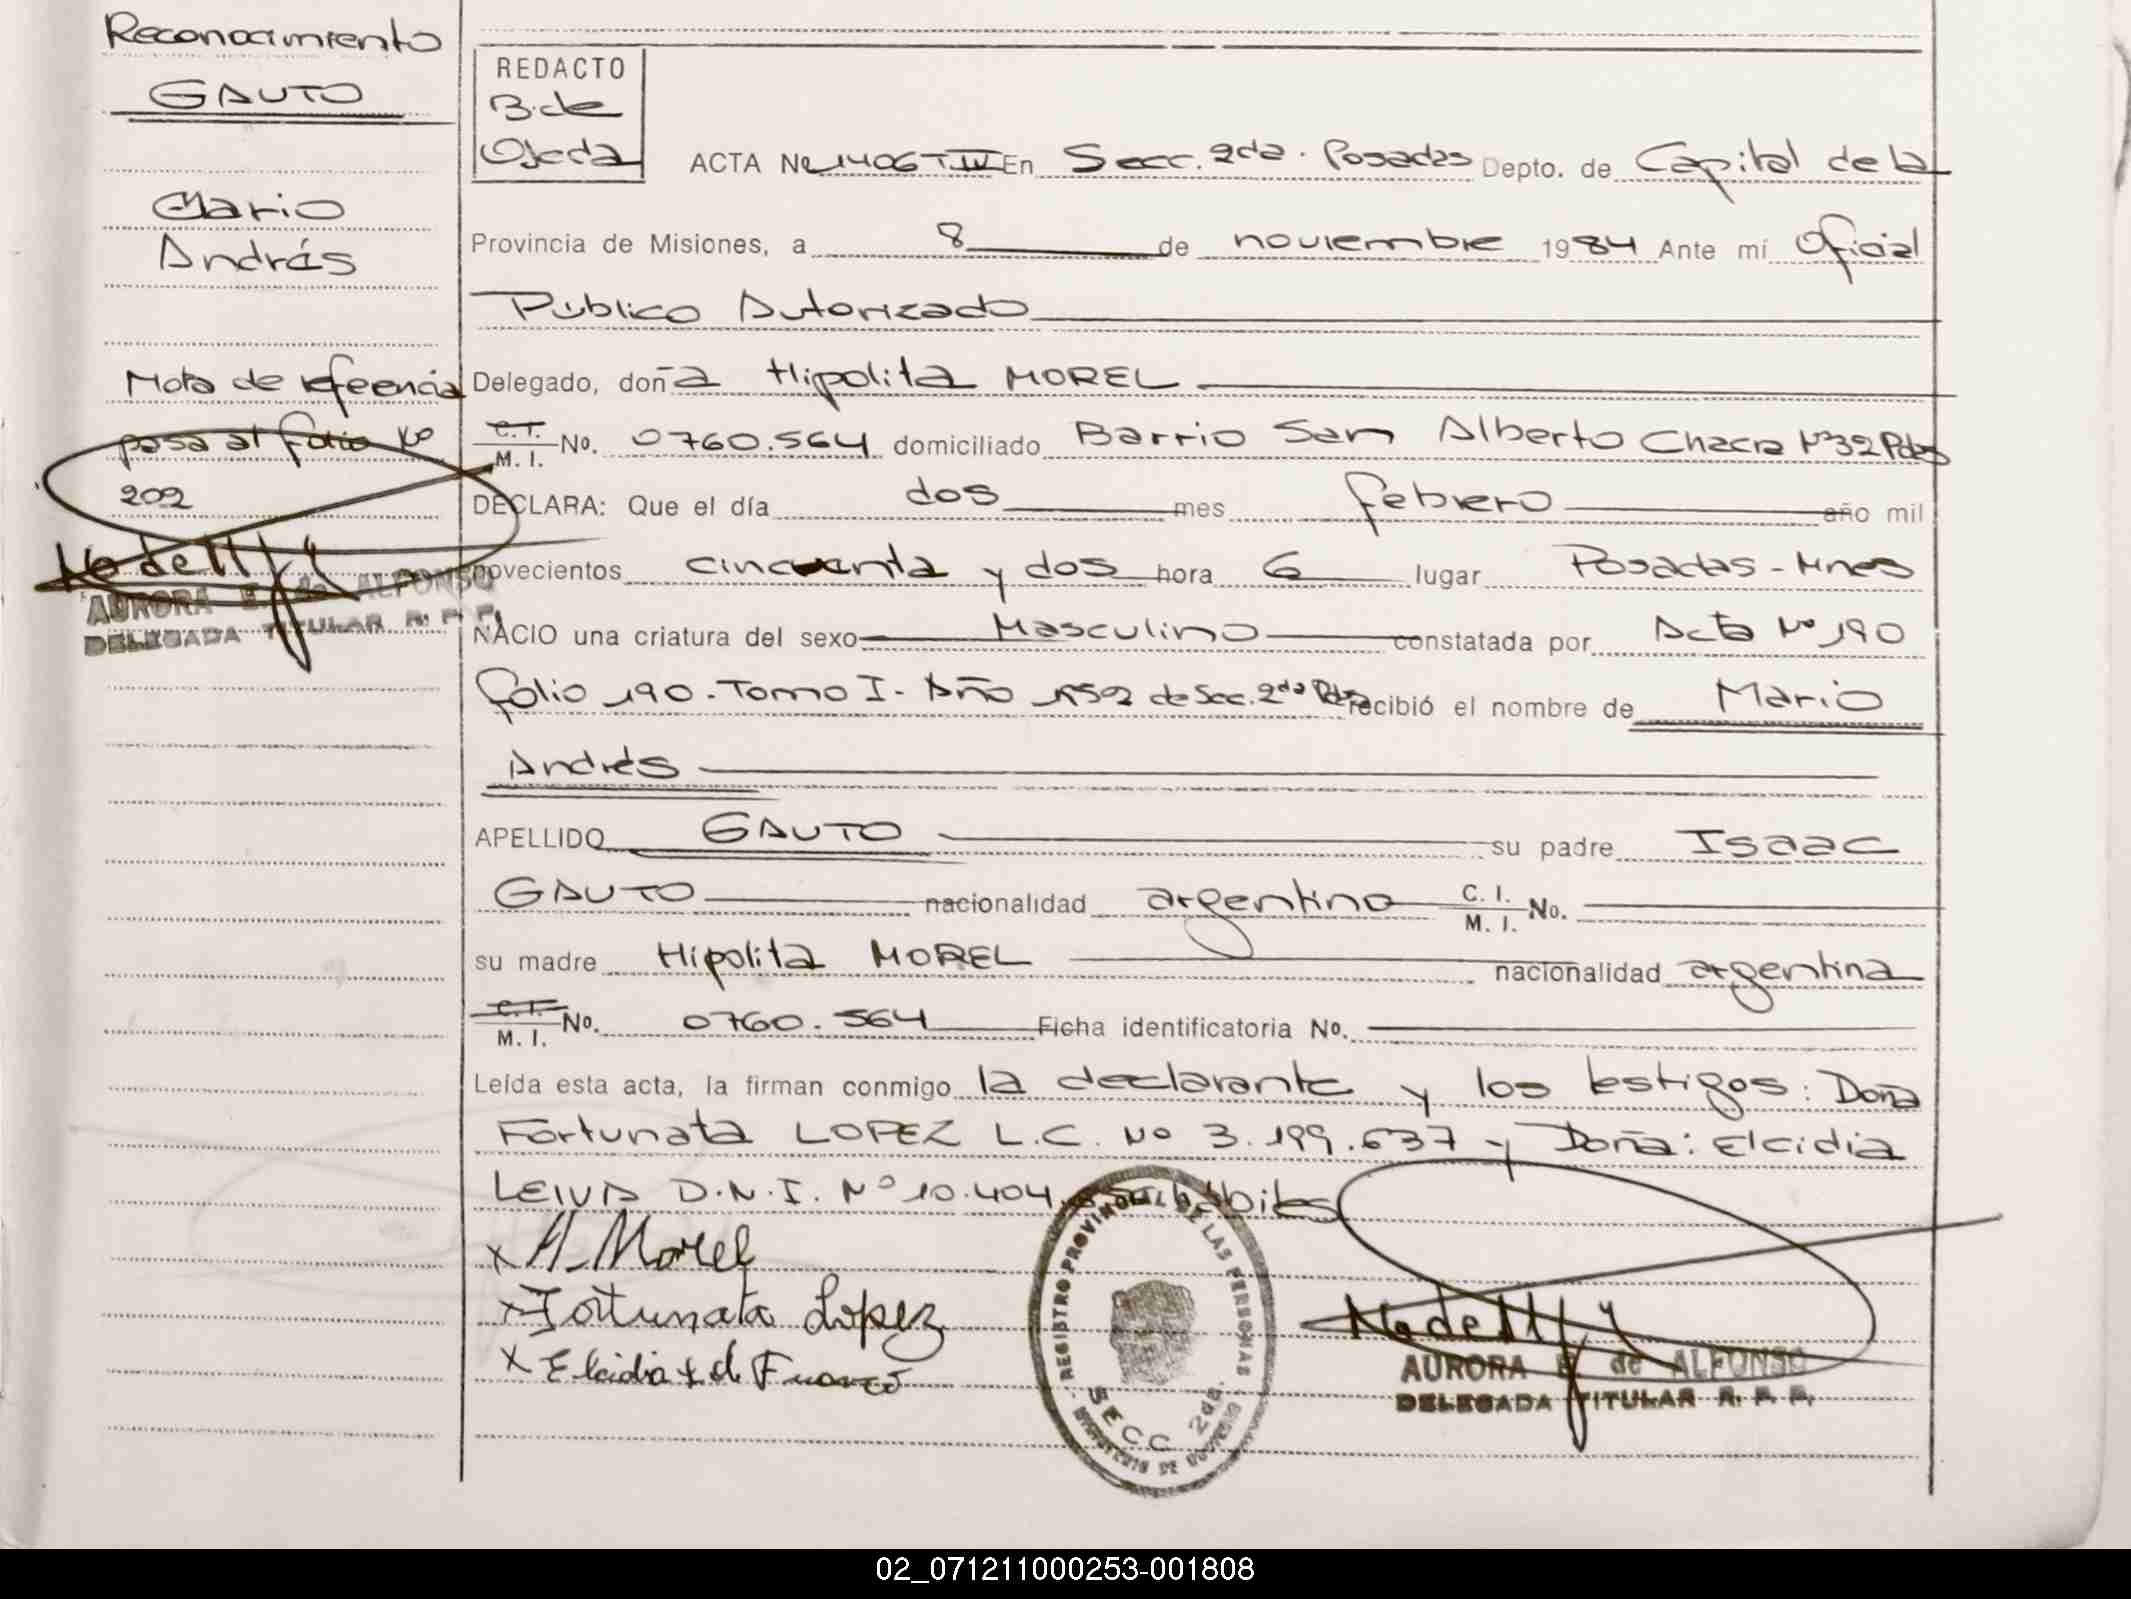 Reconocimiento
GAUTO
Mario
Andrés
Nota de refeencia
pasa al folio Nº
202
AURORA E. de ALFONSO
DELEGADA TITULAR R. P. P.
REDACTO
B. de
Ojeda
ACTA Nº 1406 T. IV En Secc. 2da. Posadas Depto. de Capital de la
Provincia de Misiones, a 8 de noviembre 1984 Ante mí Oficial
Público Autorizado
Delegado, doña Hipolita MOREL
C. I.
M. I. No. 0760.564 domiciliado Barrio San Alberto Chacra Nº 32 Pdas
DECLARA: Que el día dos mes febrero año mil
novecientos cincuenta y dos hora 6 lugar Posadas - Mnes
NACIO una criatura del sexo Masculino constatada por Acta Nº 190
folio 190 - Tomo I - Año 1952 de Sec. 2da Pdas recibió el nombre de Mario
Andrés
APELLIDO GAUTO su padre Isaac
GAUTO nacionalidad argentino C. I.
M. I. No.
su madre Hipolita MOREL nacionalidad argentina
C. I.
M. I. No. 0760.564 Ficha identificatoria No.
Leída esta acta, la firman conmigo la declarante y los testigos: Doña
Fortunata LOPEZ L.C. Nº 3.199.637 y Doña: Elcidia
LEIVA D.N.I. Nº 10.404. hábiles
x H. Morel
x Fortunata Lopez
x Elcidia
REGISTRO PROVINCIAL DE LAS PERSONAS
SECC. 2da.
MINISTERIO DE GOBIERNO
AURORA E. de ALFONSO
DELEGADA TITULAR R. P. P.
02_071211000253-001808